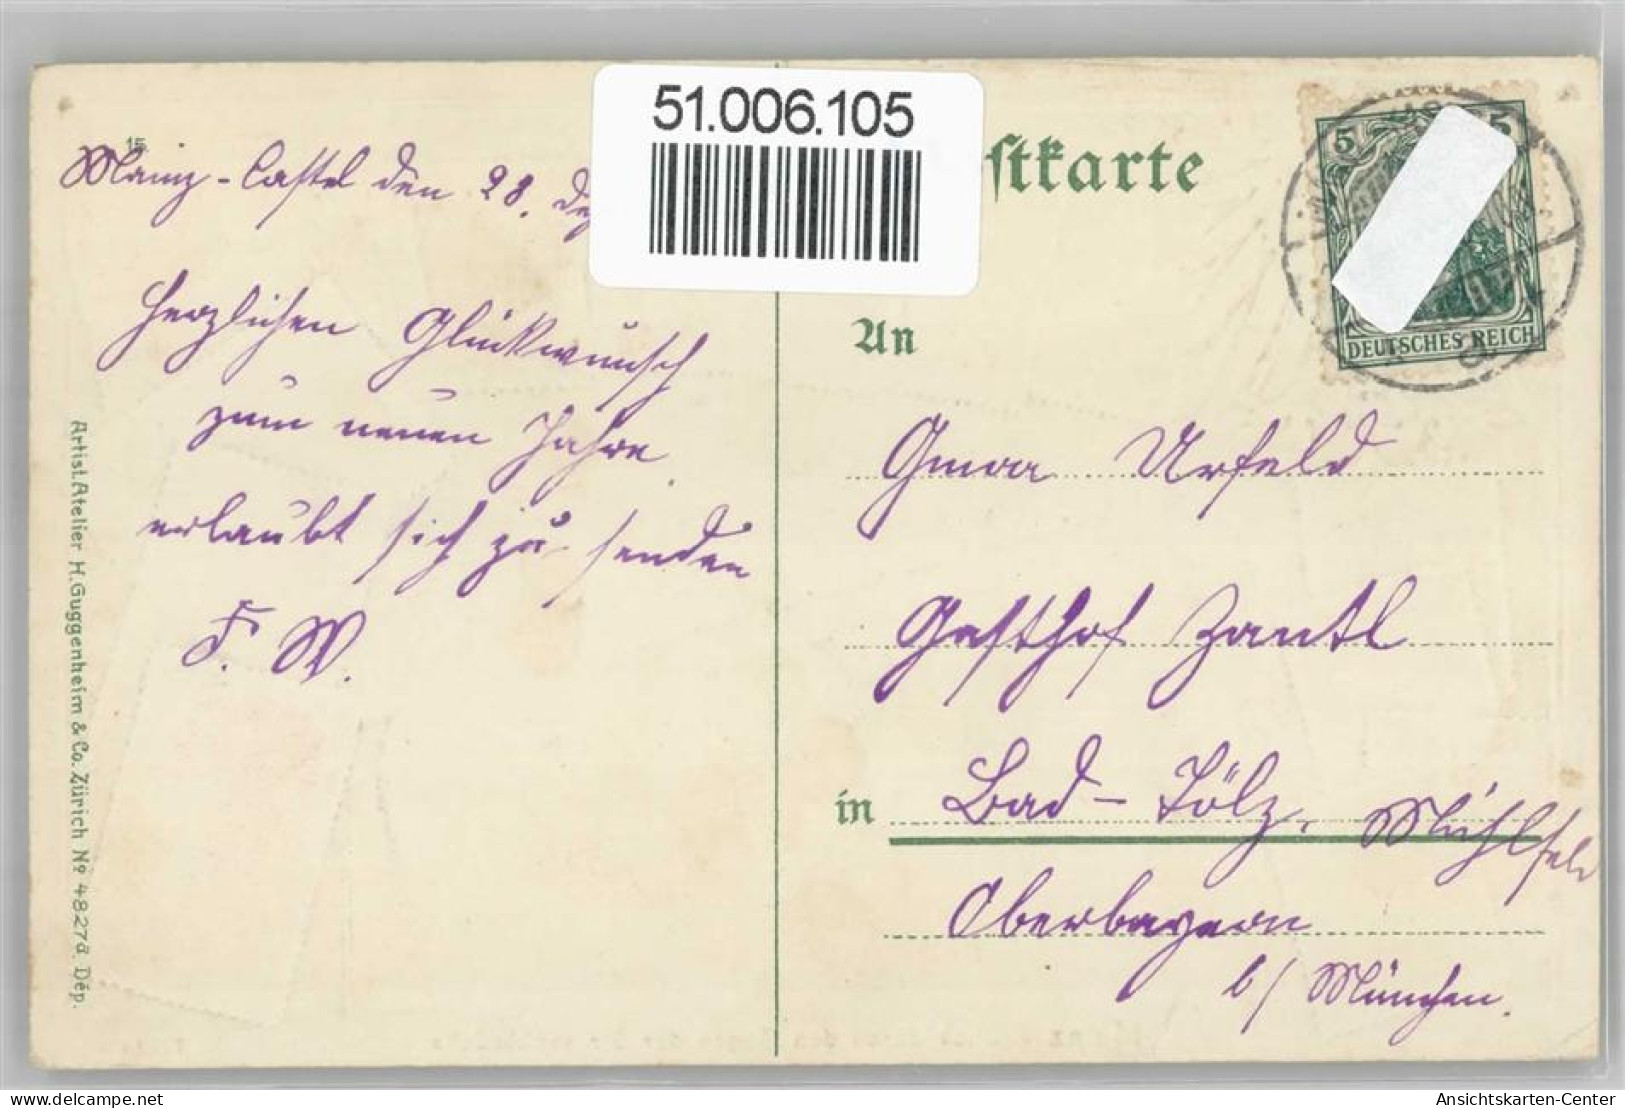 51.006.105
15.
Mainz-Castel den 28. Dez
Herzlichen Glückwunsch
zum neuen Jahre
erlaubt sich zu senden
F. W.
Artist. Atelier H. Guggenheim & Co. Zürich No 4827a Dép.
stkarte
5 5
DEUTSCHES REICH
An
Urfeld
Gasthof Zantl
in Bad-Tölz, Mühlfeld
Oberbayern
b/ München.
Ansichtskarten-Center
delcampe.net